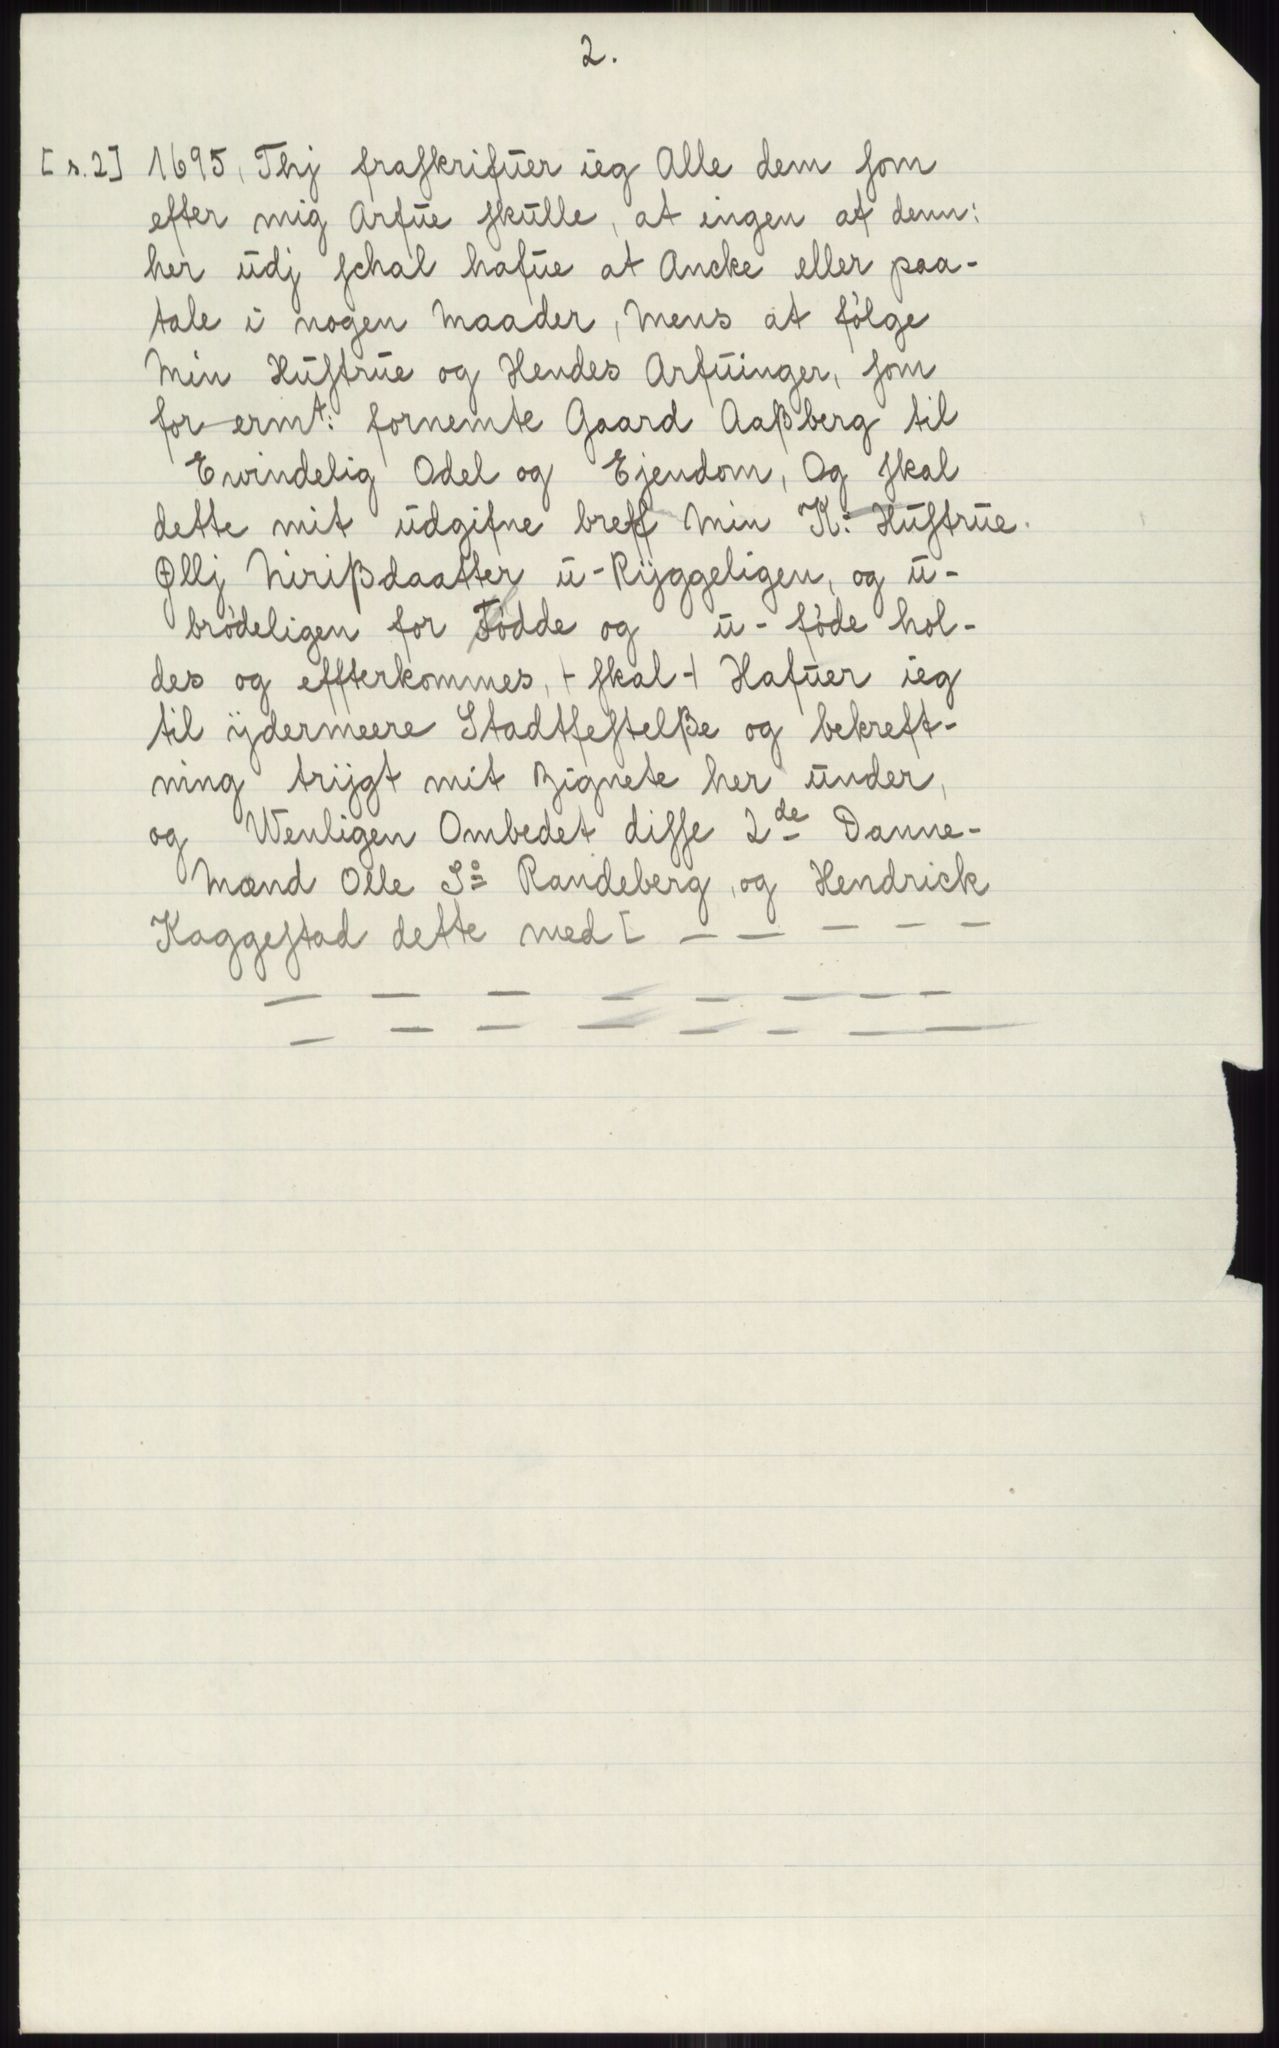 2.
[s.2] 1695, Thj fraskrifuer ieg Alle dem som
efter mig Arfue skulle, at ingen af denn:
her udj schal hafue at Ancke eller paa-
tale i nogen Maader, Mens at følge
Min Hustrue og Hendes Arfuinger, som
for ermt: fornemte Gaard Aaßberg til
Ewindelig Odel og Ejendom, Og skal
dette mit udgifne breff Min K: Hustrue.
Øllj Nirißdaatter u-Ryggeligen, og u-
brødeligen for Fødde og u-føde hol-
des og effterkommes, + skal + Hafuer ieg
til ydermeere Stadtfestelße og bekreft-
ning trygt mit Zignete her under,
og Wenligen Ombedet disse 2de Danne-
Mænd Olle S: Randeberg, og Hendrick
Kaggestad dette med [ — — — — —
— — — — — — — —
— — — — — — — —